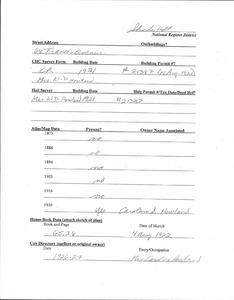 National Register District
Street Address
Outbuildings?
CHC Survey Form Building Date Building Permit #?
CR 1921 # 21387 (02 Aug. 1922)
Mrs. W.D. Howland
Hail Survey Building Date Bldg Permit #/Tax Date/Deed Ref?
Mrs. W.D. Howland 1921 #21387
Atlas/Map Data Present? Owner Name Annotated
1873
no
1886
no
1894
no
1903
no
1916
no
1930
yes Caroline A. Howland
House Book Data (attach sketch of plan)
Book and Page Date of Sketch
65:28 4 Aug. 1922
City Directory (earliest or original owner)
Date Entry/Occupation
1926-27